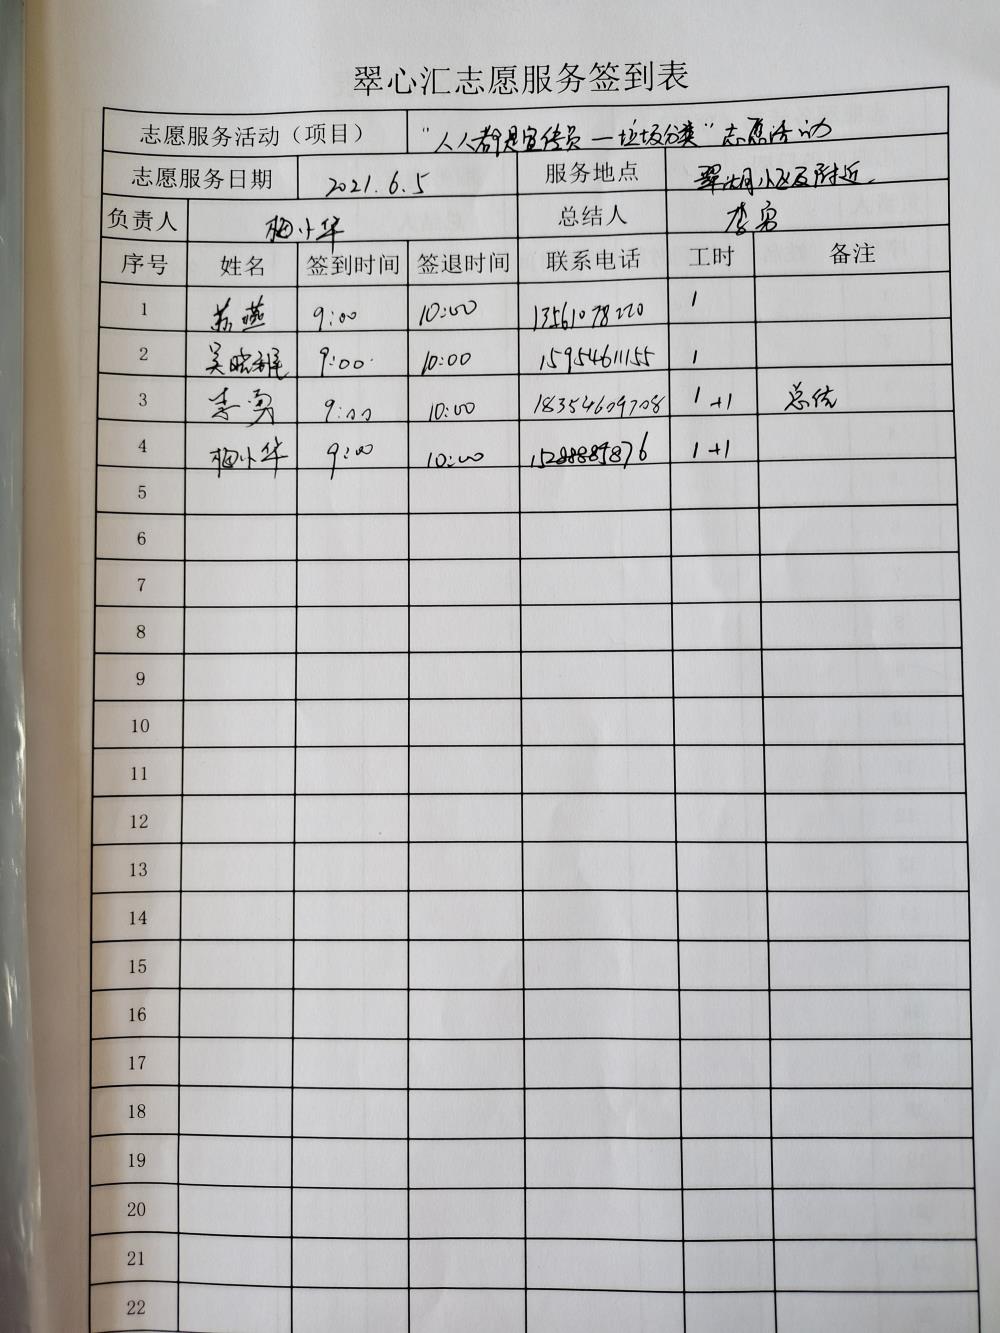 翠心汇志愿服务签到表
志愿服务活动（项目） “人人都是宣传员—垃圾分类”志愿活动
志愿服务日期 2021.6.5 服务地点 翠湖小区及附近
负责人 梅小华 总结人 李勇
序号 姓名 签到时间 签退时间 联系电话 工时 备注
1 苏燕 9:00 10:00 13561078220 1
2 吴 9:00 10:00 15954611155 1
3 李勇 9:00 10:00 18354609708 1+1 总结
4 梅小华 9:00 10:00 15288885876 1+1
5
6
7
8
9
10
11
12
13
14
15
16
17
18
19
20
21
22